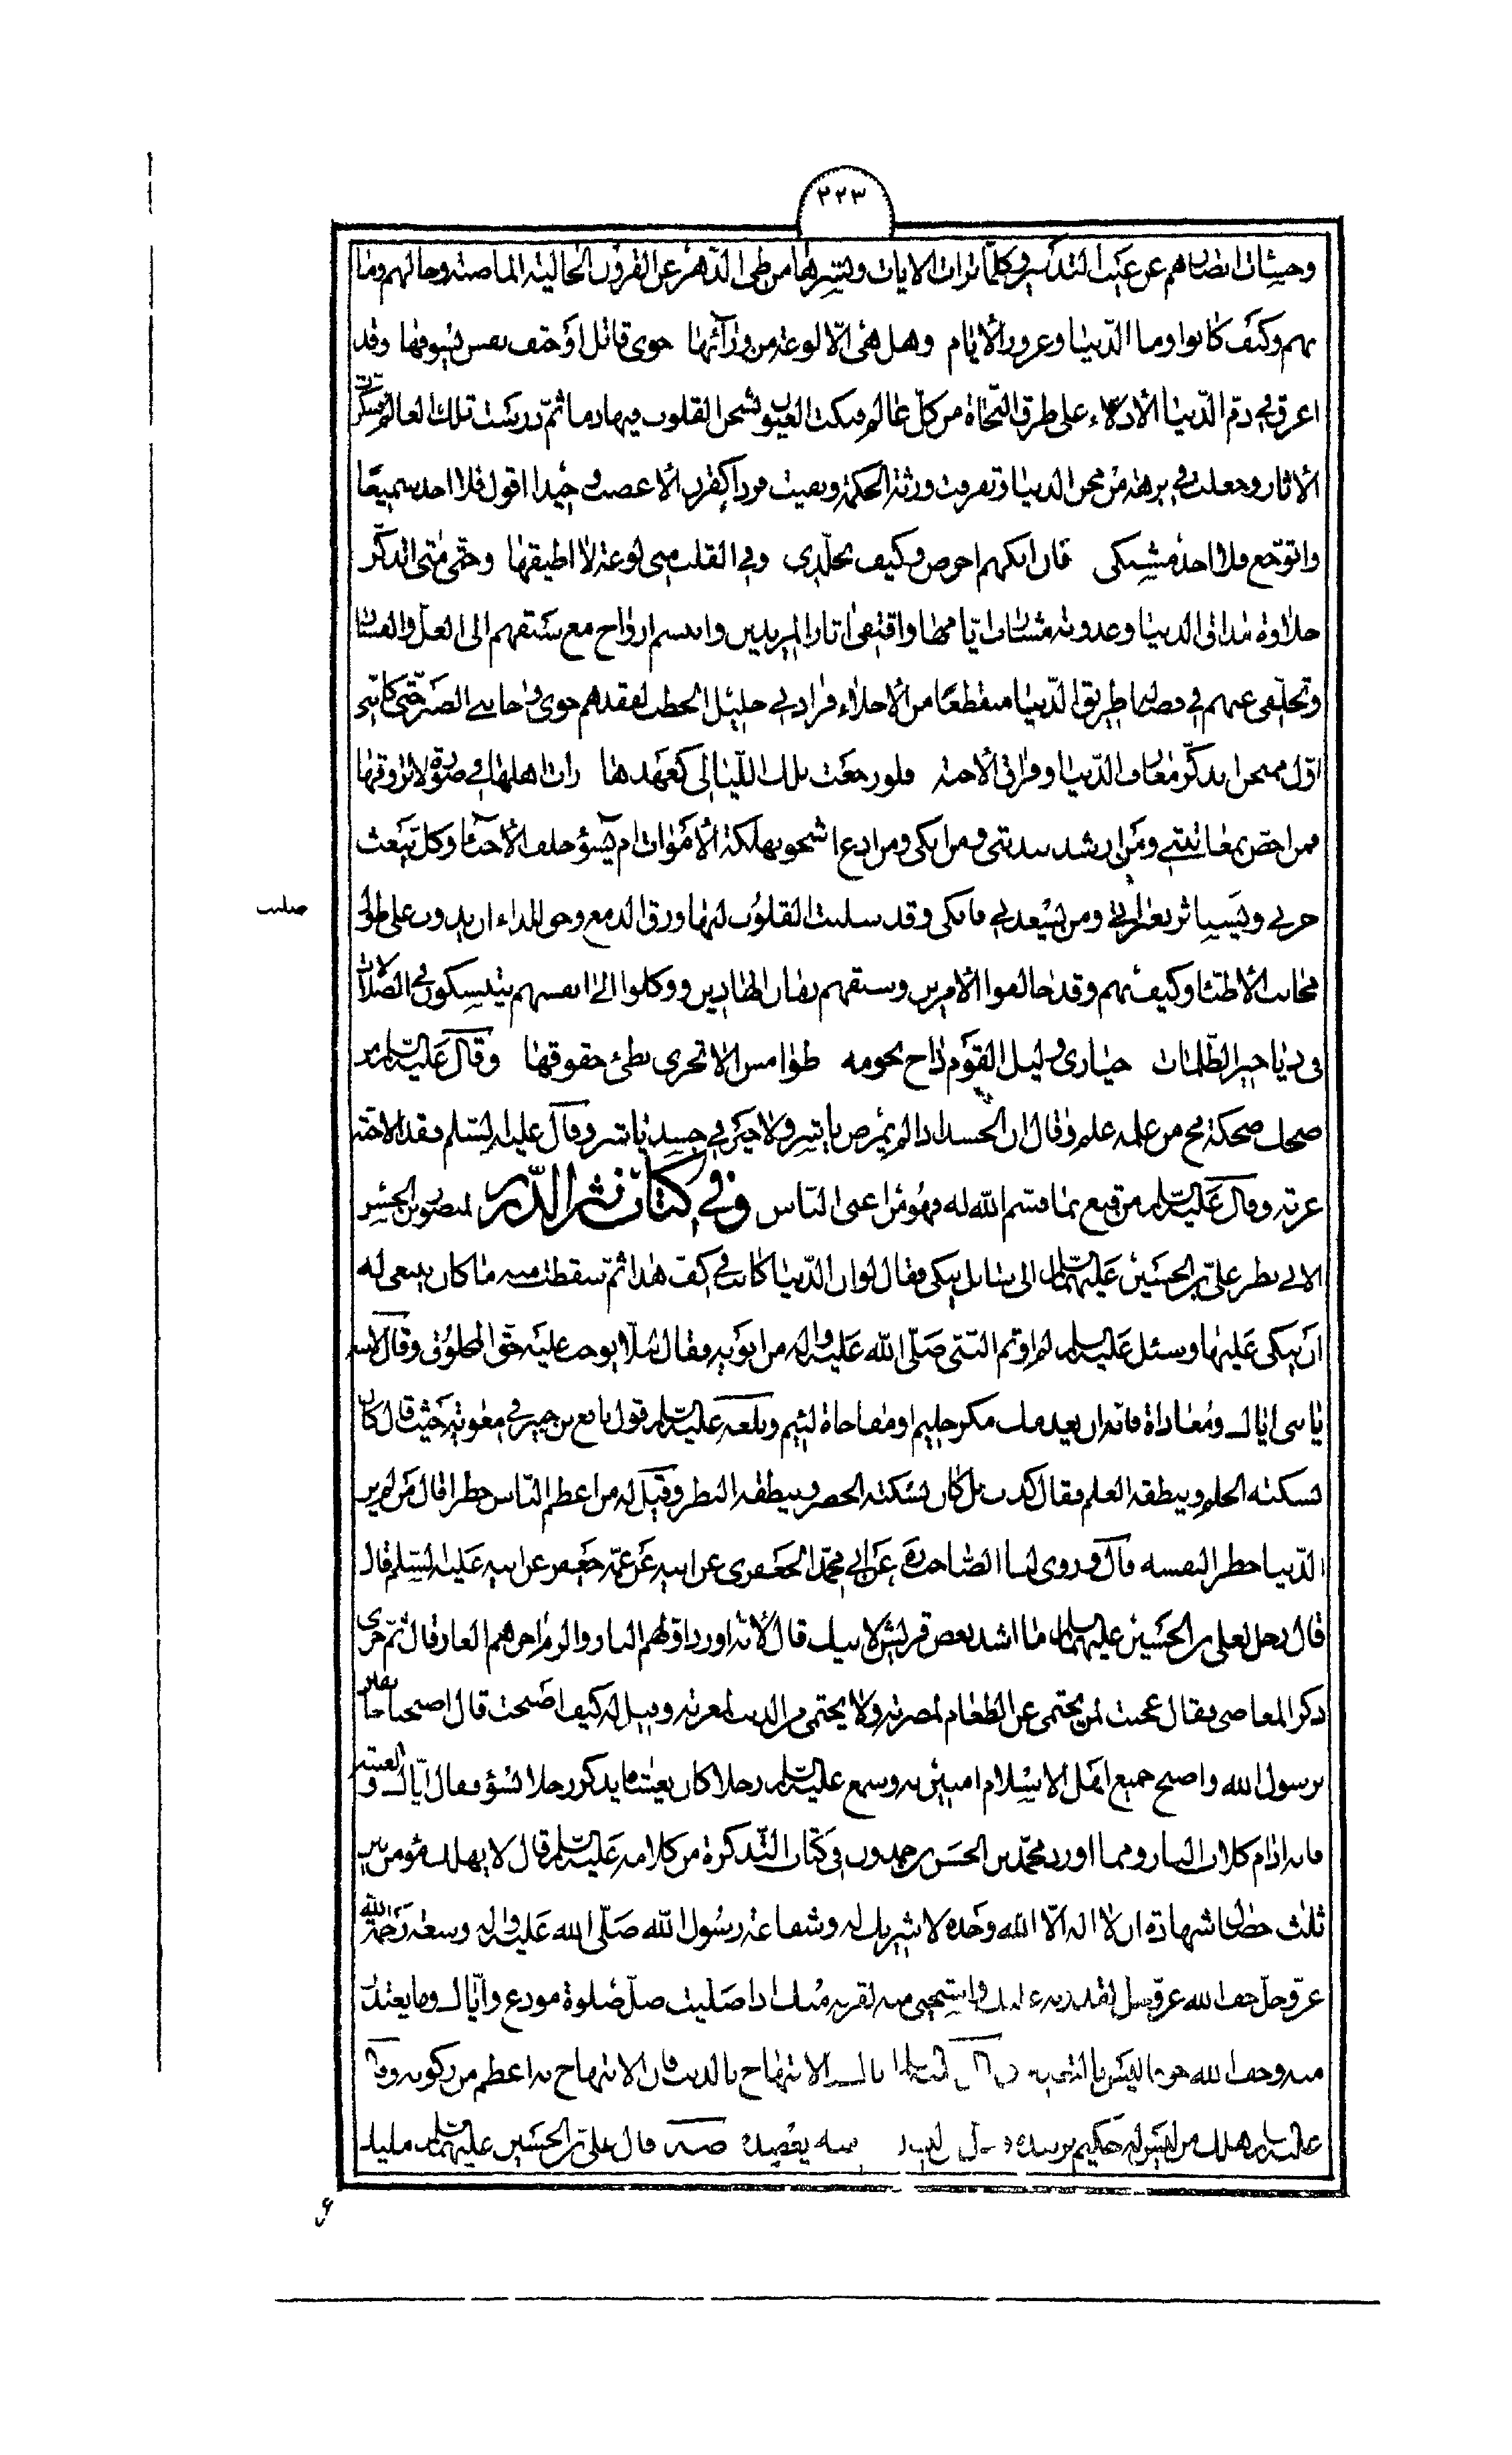 ٢٢٣
وحسات ابصارهم عن عيب التدبير وكلما تراءت الايات ونشرها من طي الدهر عن القرون الخالية الماضية وحالهم وما
بهم وكيف كانوا وما الدنيا وغرور الأيام وهل هي الا لوعة من ورائها جوى قاتل أو حتف نفس يسوقها وقد
اغرق في ذم الدنيا الأدلاء على طرق النجاة من كل عالم فبكت العيون شجن القلوب فيها دما ثم درست تلك المعالم فتنكرت
الأثار وجعلت في برهة من محن الدنيا وتفرقت ورثة الحكمة وبقيت فردا كقرن الأعضب وحيدا اقول فلا اجد سميعا
واتوجع فلا اجد مشتكى فان ابكهم اجرض وكيف تجلدي وفي القلب مني لوعة لا اطيقها وحتى متى اتذكر
حلاوة مذاق الدنيا وعذوبة مشارب ايامها واقتفي اثار المريدين واتنسم ارواح مع سبقهم الى الغل والفساد
وتخلفي عنهم في فضالة طريق الدنيا منقطعا من الأخلاء فزادني جليل الخطب لفقدهم جوى وخانني الصبر حتى كانني
اول ممتحن اتذكر معارف الدنيا وفراق الأحبة فلو رجعت تلك الليالي كعهدها رأت اهلها في صورة لا تروقها
فمن اخص بمعاتبتي ومن ارشد بندبتي ومن ابكي ومن ادع اشجو بهلكة الأموات ام بسوء خلف الأحياء وكل يبعث
حزني ويستاثر بعبراتي ومن يسعدني فابكي وقد سلبت القلوب لبها ورق الدمع وحق للداء ان يذوب على طول
صليب
مجانبة الأطباء وكيف بهم وقد خالفوا الأمرين وسبقهم زمان الهادين ووكلوا الى انفسهم يتنسكون في الضلالات
في دياجير الظلمات حيارى وليل القوم داج نجومه طوامس لا تجري بطيء خفوقها وقال عليه السلام من
ضحك ضحكة مج من علمه علم وقال ان الجسد اذا لم يمرض ياشر ولا خير في جسد ياشر وقال عليه السلم فقد الاحبة
غربة وقال عليه السلام من قنع بما قسم الله له فهو من اغنى الناس وفي كتاب نثر الدرر لمنصور بن الحسين
الابي نظر علي بن الحسين عليهما السلام الى سائل يبكي فقال لو ان الدنيا كانت في كف هذا ثم سقطت منه ما كان ينبغي له
ان يبكي عليها وسئل عليه السلام لم اوتم النبي صلى الله عليه واله من ابويه فقال لئلا يوجب عليه حق المخلوق وقال لابنه
يا بني اياك ومعاداة فانه لن يعدمك مكر حليم او مفاجاة لئيم وبلغه عليه السلام قول نافع بن جبير في معوية حيث قال كان
يسكته الحلم وينطقه العلم فقال كذب بل كان يسكته الحصر وينطقه البطر وقيل له من اعظم الناس خطرا قال من لم ير
الدنيا خطرا لنفسه قال وروى لنا الصاحب ره عن ابي محمد الجعفري عن ابيه عن عمه جعفر عن ابيه عليه السلم قال
قال رجل لعلي بن الحسين عليهما السلام ما اشد بغض قريش لابيك قال لأنه اورد اولهم النار والزم اخرهم العار قال ثم جرى
ذكر المعاصي فقال عجبت لمن يحتمي عن الطعام لمضرته ولا يحتمي من الذنب لمعرته وقيل له كيف اصبحت قال اصبحنا خائفين
برسول الله واصبح جميع اهل الاسلام امنين به وسمع عليه السلام رجلا كان يغشاه يذكر رجلا بسوء فقال اياك والغيبة
فانه ادام كلاب النار ومما اورد محمد بن الحسن بن حمدون في كتاب التذكرة من كلامه عليه السلام قال لا يهلك مؤمن بين
ثلث خصال شهادة ان لا اله الا الله وحده لا شريك له وشفاعة رسول الله صلى الله عليه واله وسعة رحمة الله
عز وجل خف الله عز وجل لقدرته عليك واستحيي منه لقربه منك اذا صليت صل صلوة مودع واياك وما يعتذر
منه وخف الله خوفا ليس بالتعذير الابتهاج بالذنب فان الابتهاج به اعظم من ركوبه وقال
عليه السلام هلك من ليس له حكيم يرشده سفيه يعضده قال علي بن الحسين عليهما السلام